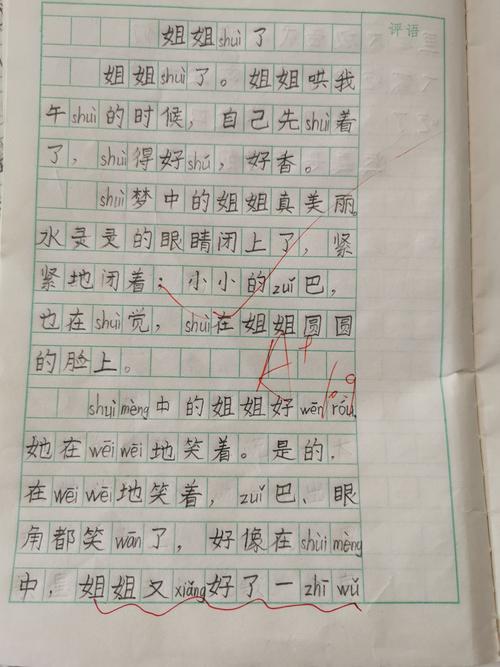 评语
姐姐shuì了
姐姐shuì了。姐姐哄我
午shuì的时候，自己先shuì着
了，shuì得好shú，好香。
shuì梦中的姐姐真美丽。
水灵灵的眼睛闭上了，紧
紧地闭着；小小的zuǐ巴，
也在shuì觉，shuì在姐姐圆圆
的脸上。
shuìmèng中的姐姐好wēn róu，
她在wēi wēi地笑着。是的，
在wēi wēi地笑着，zuǐ巴、眼
角都笑wān了，好像在shuìmèng
中，姐姐又xiǎng好了一zhī wǔ